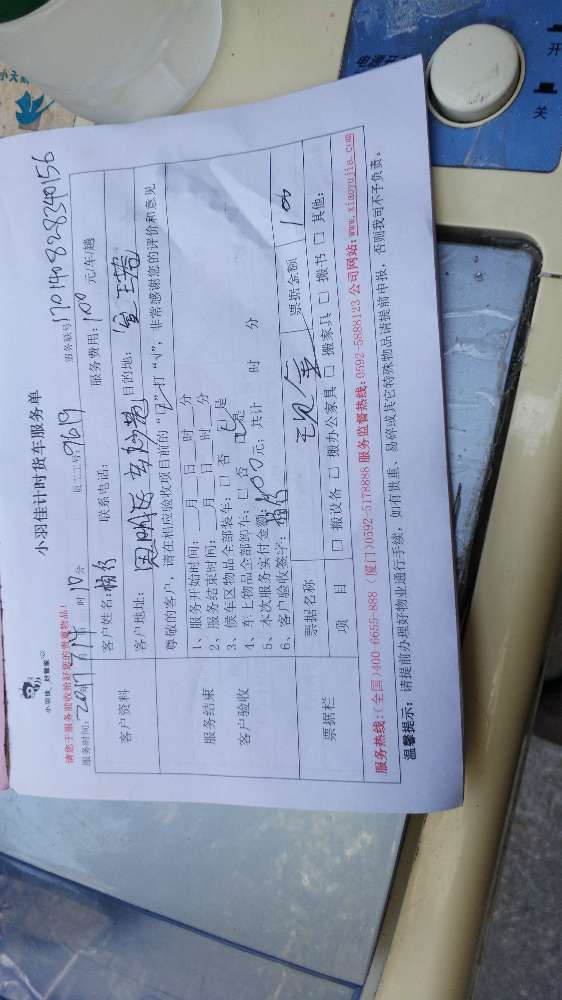 小羽佳计时货车服务单
小羽佳，好管家
请您于服务前收拾好您的贵重物品！
服务时间：2017年 时10分 员工工号：0619 服务联号170140828340156
客户资料
客户姓名： 联系电话： 服务费用：100 元/车/趟
客户地址： 目的地：
服务结束
客户验收
尊敬的客户，请在相应验收项目前的“口”打“√”，非常感谢您的评价和意见
1、服务开始时间：__月__日__时__分
2、服务结束时间：__月__日__时__分
3、候车区物品全部装车：□ 否 ☑ 是
4、车上物品全部卸车：□ 否 ☑ 是
5、本次服务实付金额：100元；共计 时 分
6、客户验收签字：
票据栏
票据名称 现金 票据金额 100
项 目 □ 搬设备 □ 搬办公家具 □ 搬家具 □ 搬书 □ 其他：
服务热线：(全国)400-6655-888 (厦门)0592-5178888 服务监督热线：0592-5888123 公司网站：www.xiaoyujia.com
温馨提示：请提前办理好物业通行手续，如有贵重、易碎或其它特殊物品请提前申报，否则我司不予负责。
小天鹅
开
关